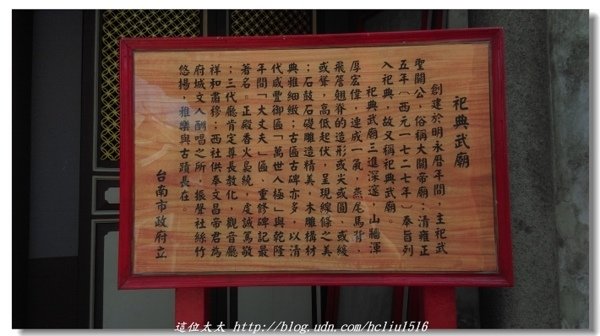 祀典武廟
創建於明永曆年間，主祀武
聖關公，俗稱大關帝廟，清雍正
五年（西元一七二七年）奉旨列
入祀典，故又稱祀典武廟。
祀典武廟三進深邃，山牆渾
厚宏偉，連成一氣，燕尾馬背，
飛簷翹脊的造形或尖或圓、或緩
或聳，高低起伏，呈現線條之美
；石鼓石礎雕造精美，木雕構材
典雅細緻；古匾古碑亦多，以清
代咸豐御匾「萬世人極」與乾隆
年間「大丈夫」匾、重修碑記最
著名。正殿香火裊繞，虔誠篤敬
；三代廳肯定尊長教化，觀音廳
祥和肅穆；西社供奉文昌帝君為
府城文人酬唱之所，振聲社絲竹
悠揚，雅樂與古蹟長在。
台南市政府立
這位太太 http://blog.udn.com/hcliu1516